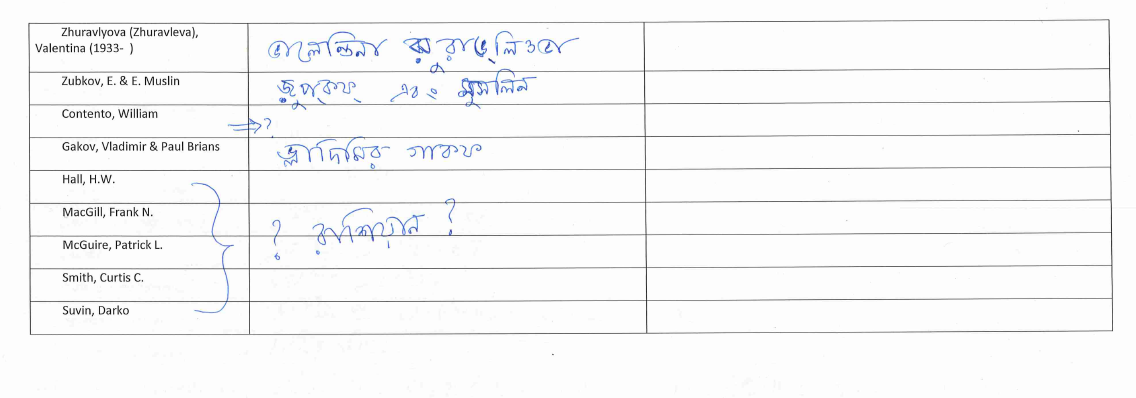 Zhuravlyova (Zhuravleva),
Valentina (1933- )
ভালেন্তিনা ঝুরাভ্‌লিওভা
Zubkov, E. & E. Muslin
জুপ্‌কফ্‌ এবং মুসলিন
Contento, William
⇒?
Gakov, Vladimir & Paul Brians
ভ্লাদিমির গাকফ
Hall, H.W.
MacGill, Frank N.
? রাশিয়ান ?
McGuire, Patrick L.
Smith, Curtis C.
Suvin, Darko